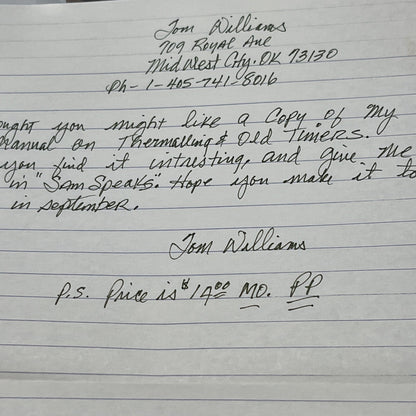 Tom Williams
709 Royal Ave
Mid West City, OK 73130
Ph- 1-405-741-8016
ought you might like a Copy of My
Manual on Thermalling & Old Timers.
you find it intresting, and give me
in "Sam Speaks". Hope you make it to
in september.
Tom Williams
P.S. Price is $14.00 MO. PP